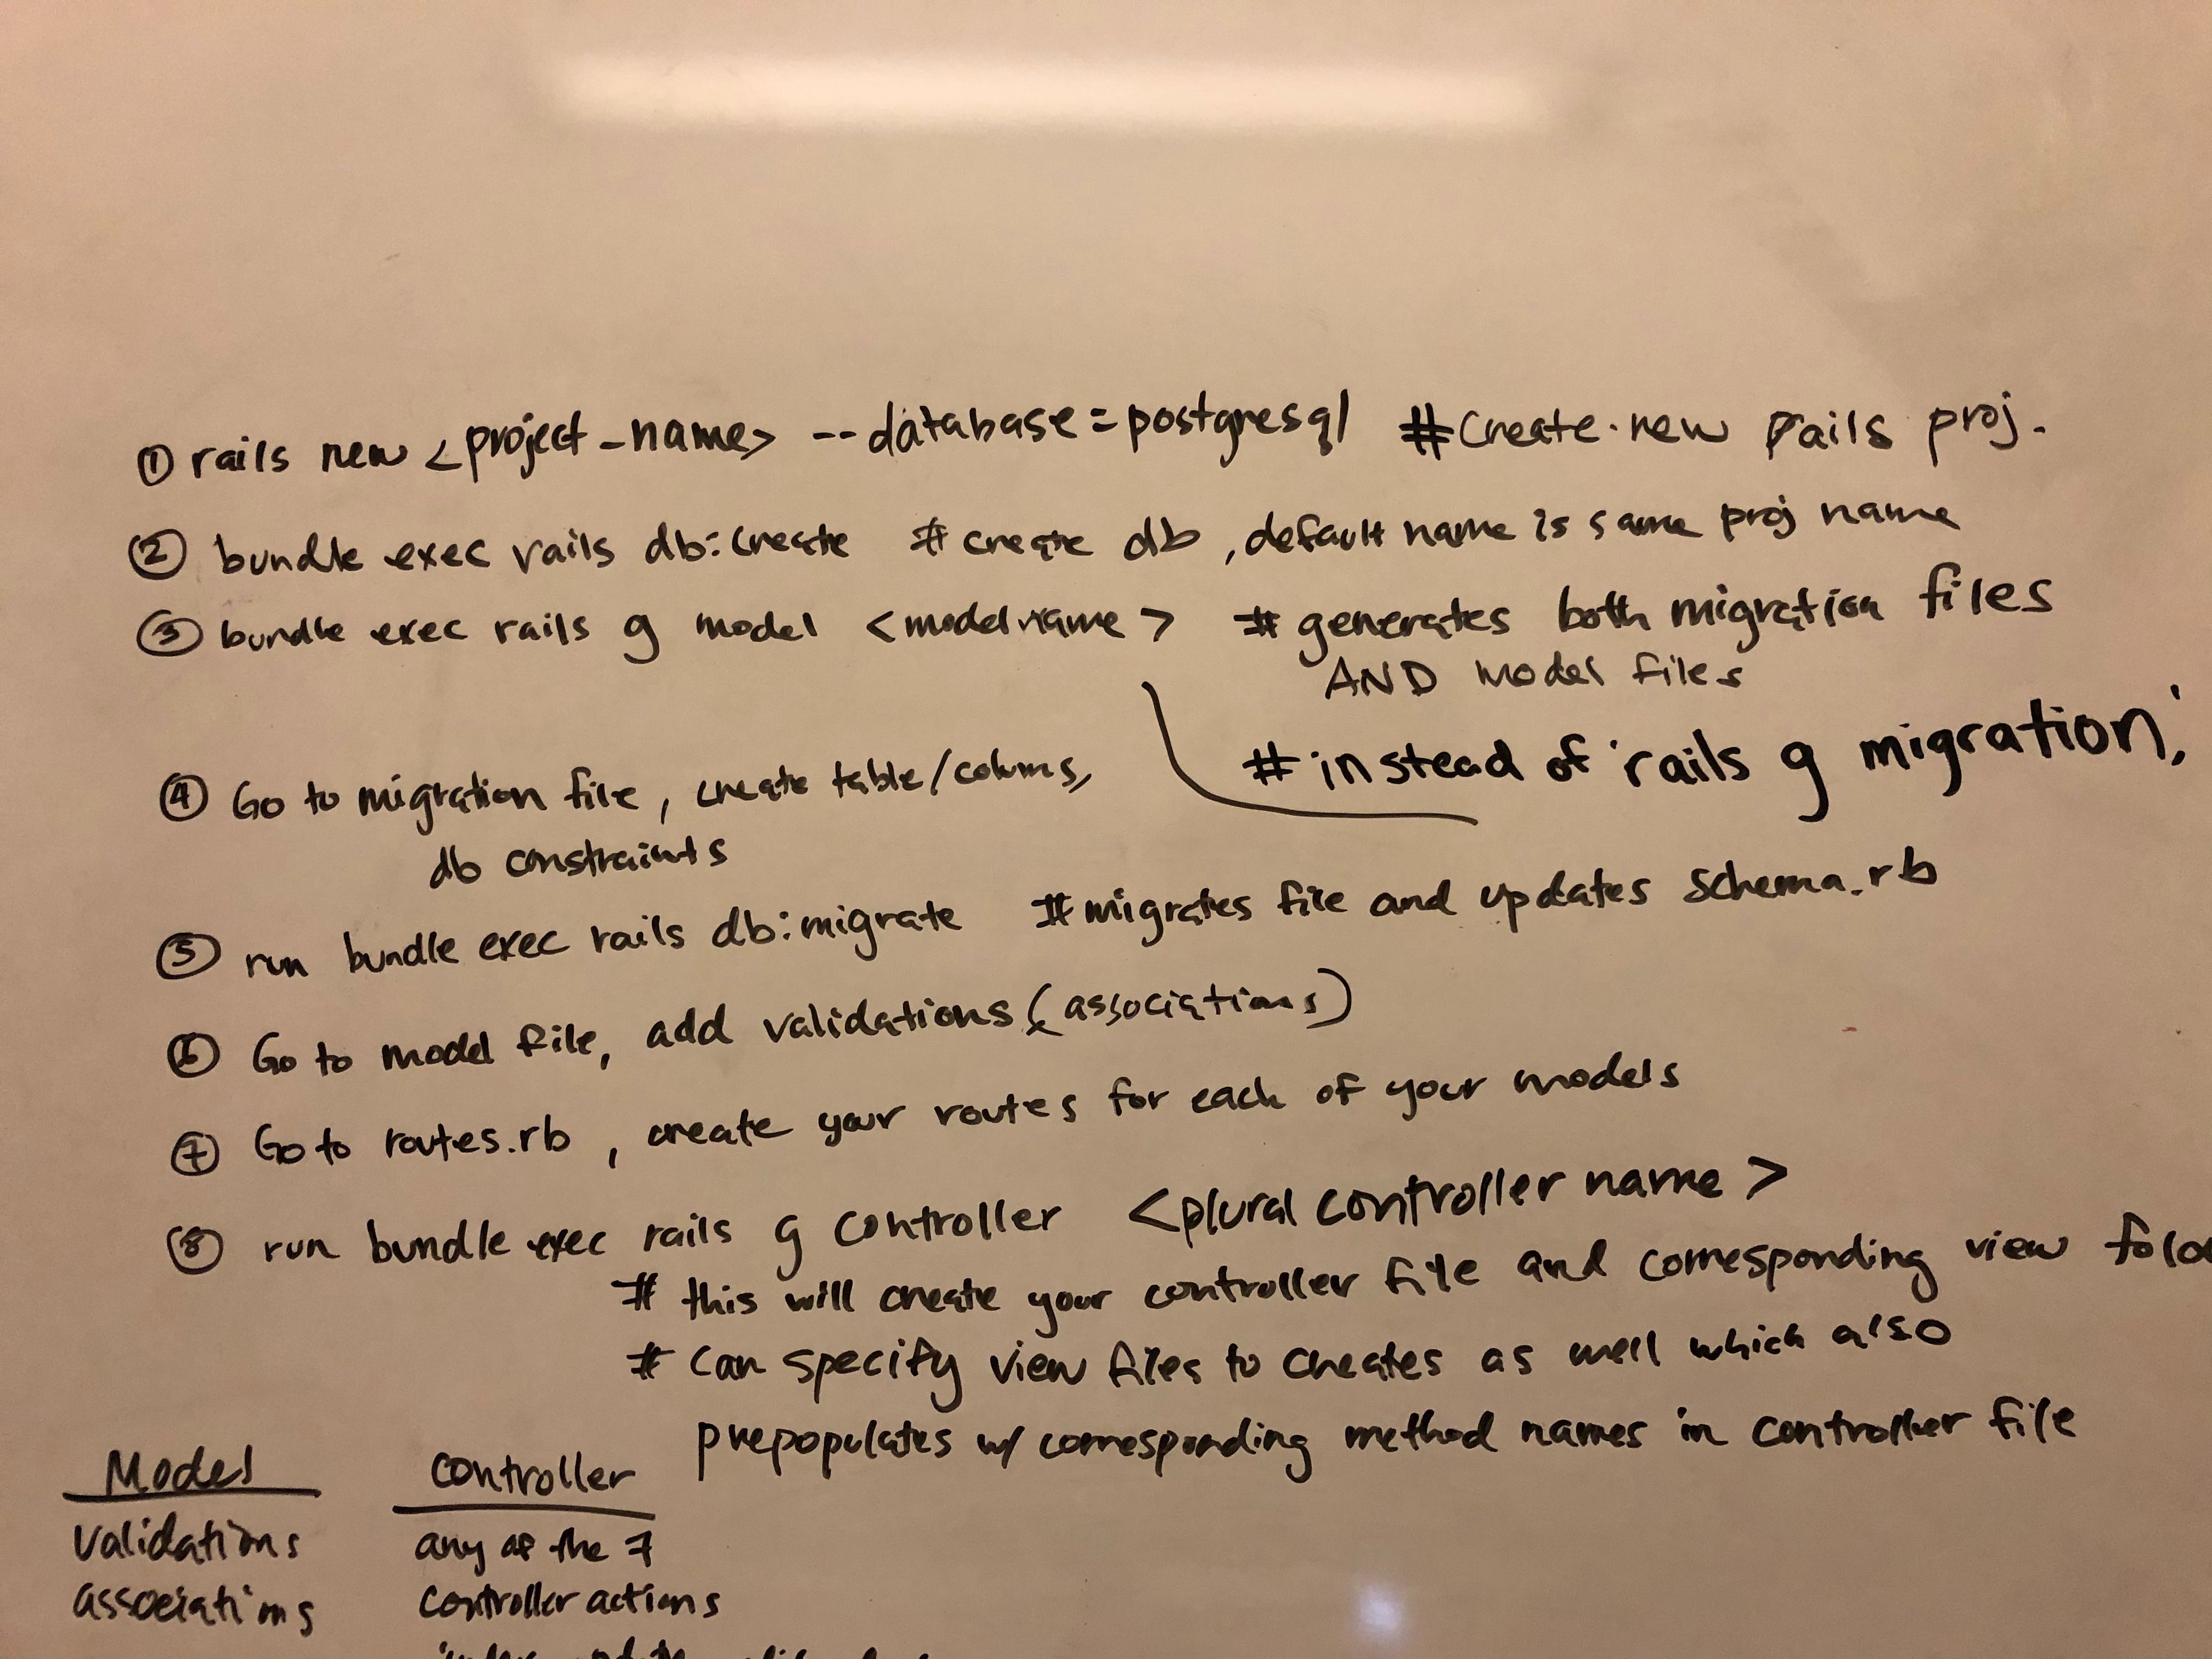 ① rails new <project_name> --database=postgresql #Create new Rails proj.
② bundle exec rails db:create # create db, default name is same proj name
③ bundle exec rails g model <modelname> # generates both migration files
AND model files
# instead of 'rails g migration,'
④ Go to migration file, create table/colums,
db constraints
⑤ run bundle exec rails db:migrate #migrates file and updates schema.rb
⑥ Go to model file, add validations (associations)
⑦ Go to routes.rb, create your routes for each of your models
⑧ run bundle exec rails g controller <plural controller name>
# this will create your controller file and corresponding view
# can specify view files to creates as well which also
prepopulates w/ corresponding method names in controller file
Model
validations
associations
controller
any of the 7
controller actions